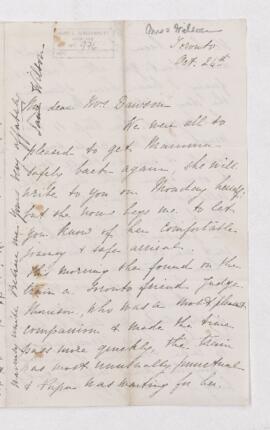 Miss Wilson
Toronto
Oct. 24th
My dear Mrs Dawson
We were all so
pleased to get Mamma
safely back again, she will
write to you on Monday herself,
but she now begs me to let
you know of her comfortable
journey & safe arrival.
In the morning she found on the
train a Toronto friend Judge
Morrison, who was a most pleasant
companion & made the time
pass more quickly, the train
was most unusually punctual
& Papa was waiting for her.
warmly unite Believe me yours very affectately
Janie Wilson